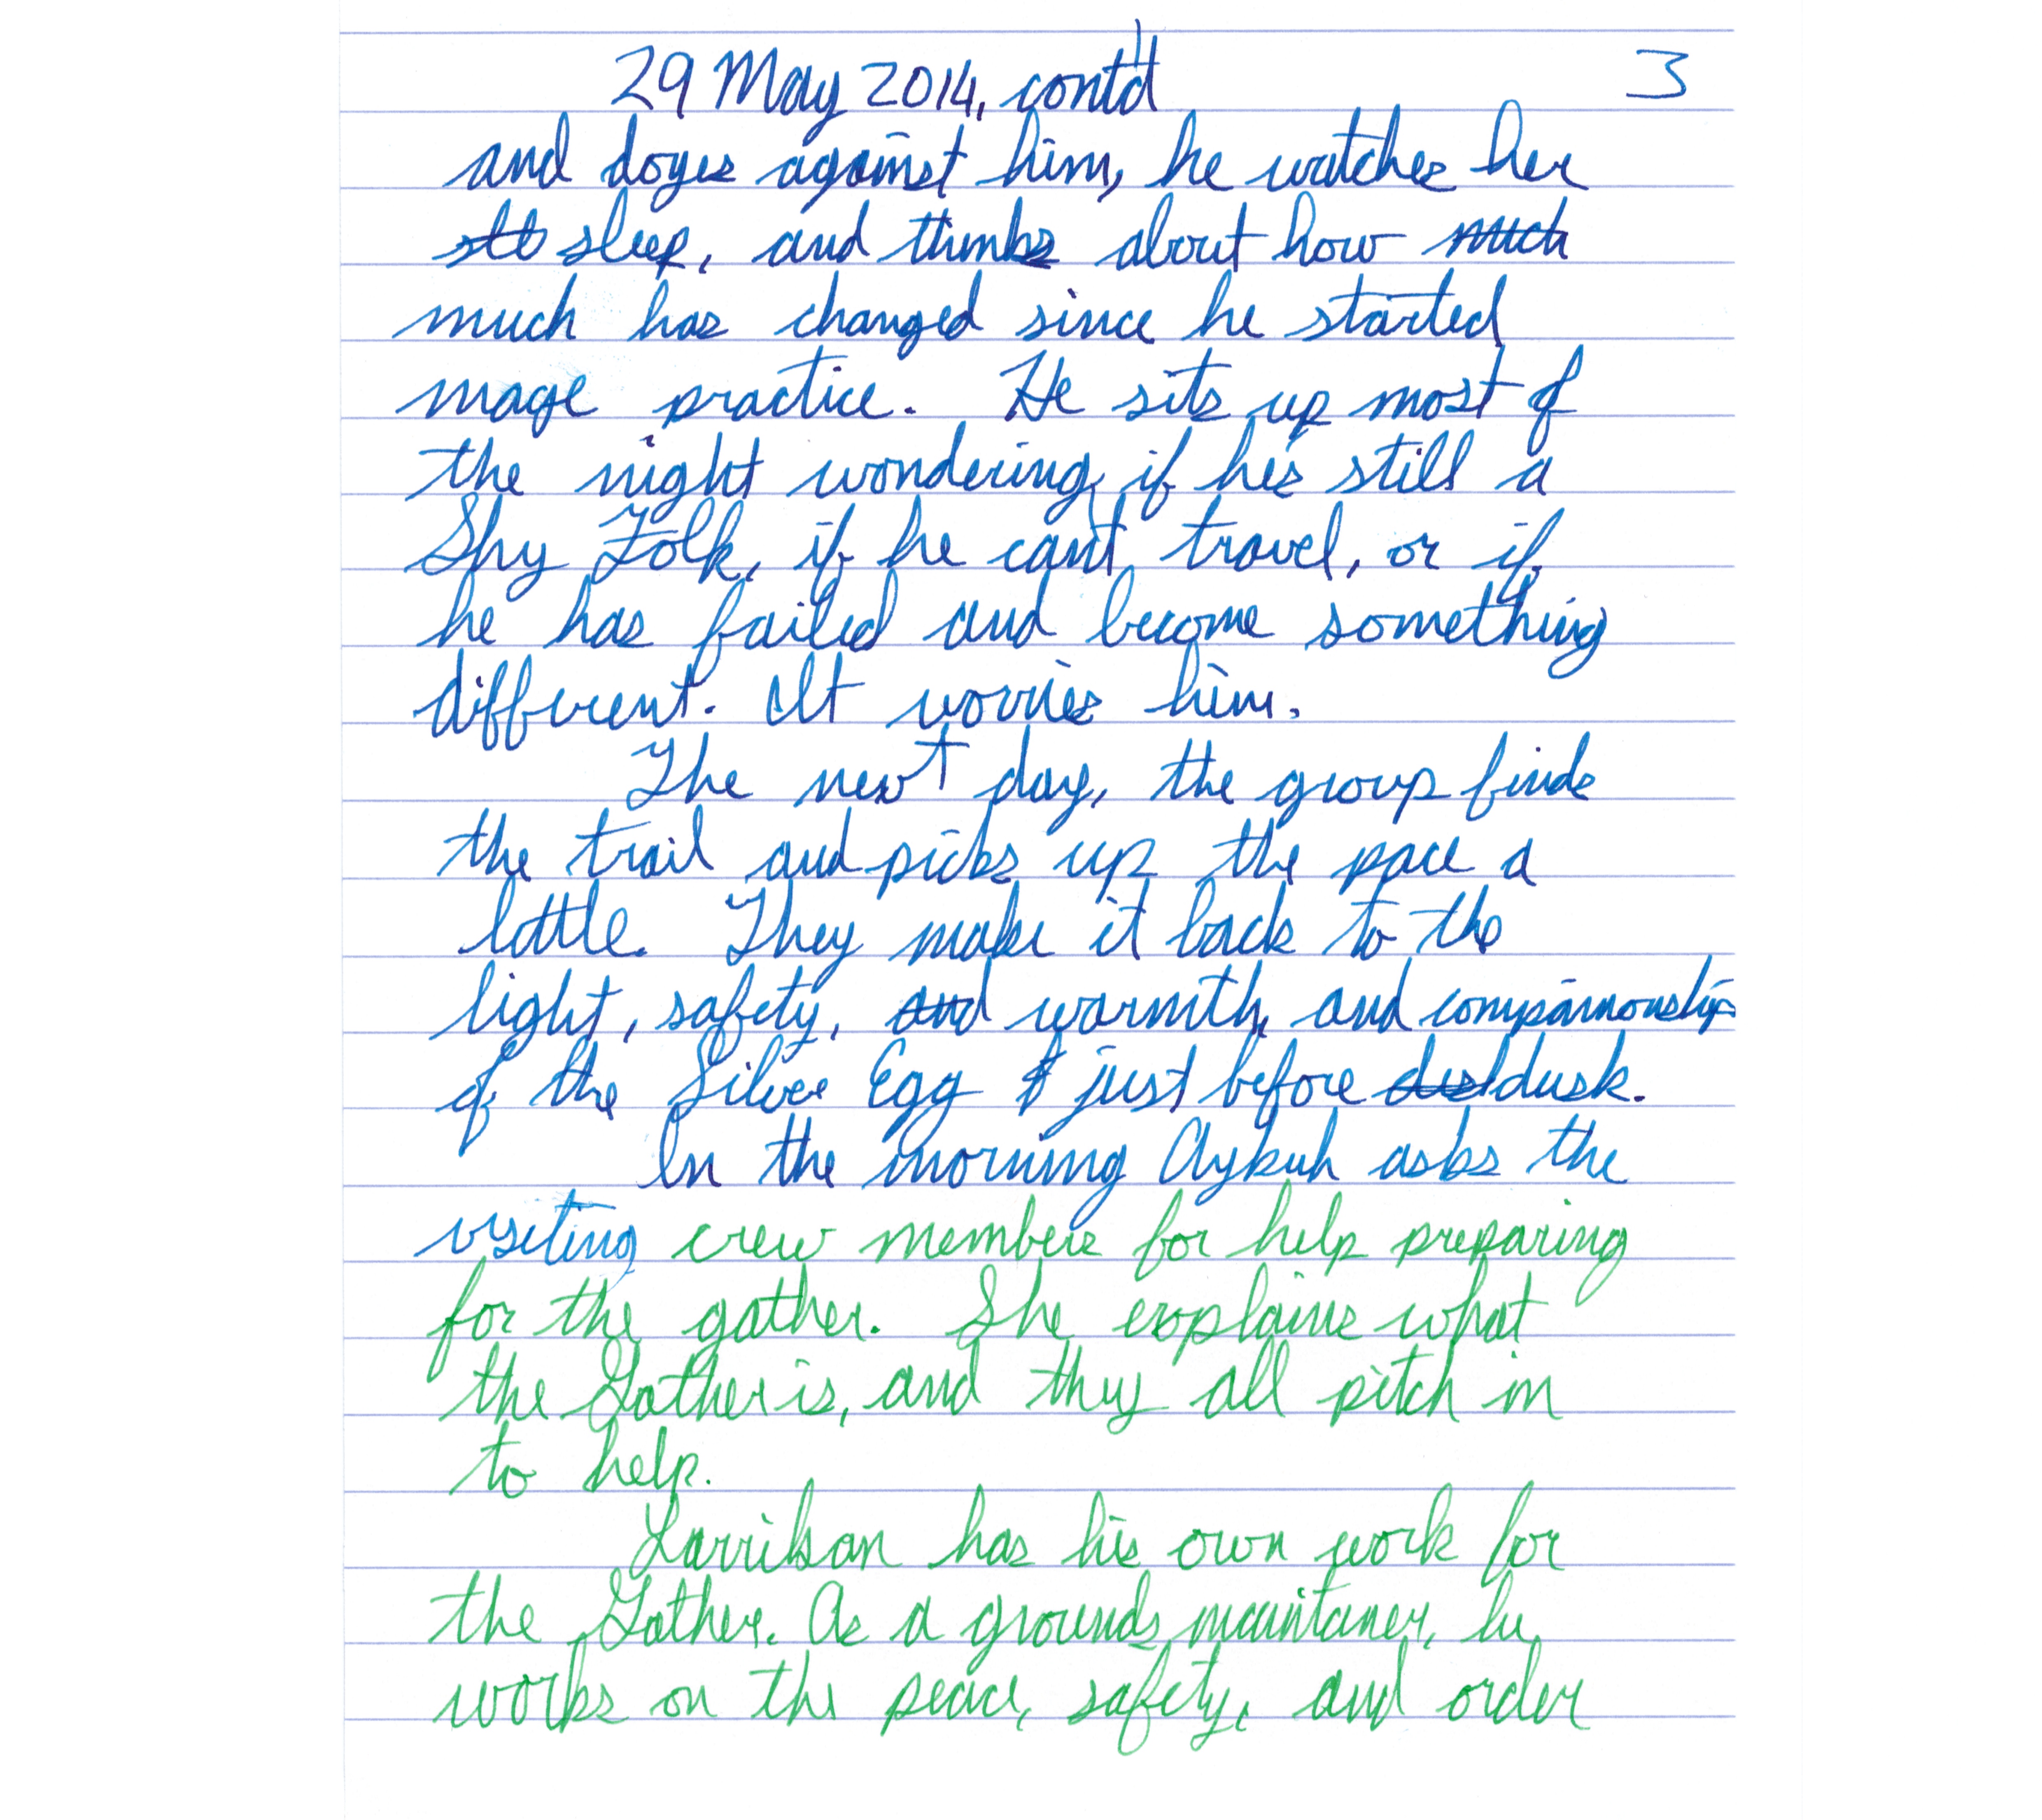 29 May 2014, cont'd 3
and dozes against him, he watches her
sle sleep, and thinks about how much
much has changed since he started
mage practice. He sits up most of
the night wondering if he's still a
Shy Folk, if he can't travel, or if
he has failed and become something
different. It worries him.
The next day, the group finds
the trail and picks up the pace a
little. They make it back to the
light, safety, and warmth, and companionship
of the Silver Egg just before dusk.
In the morning Aykuh asks the
visiting crew members for help preparing
for the gather. She explains what
the Gather is, and they all pitch in
to help.
Larrikan has his own work for
the Gather. As a grounds maintainer, he
works on the peace, safety, and order